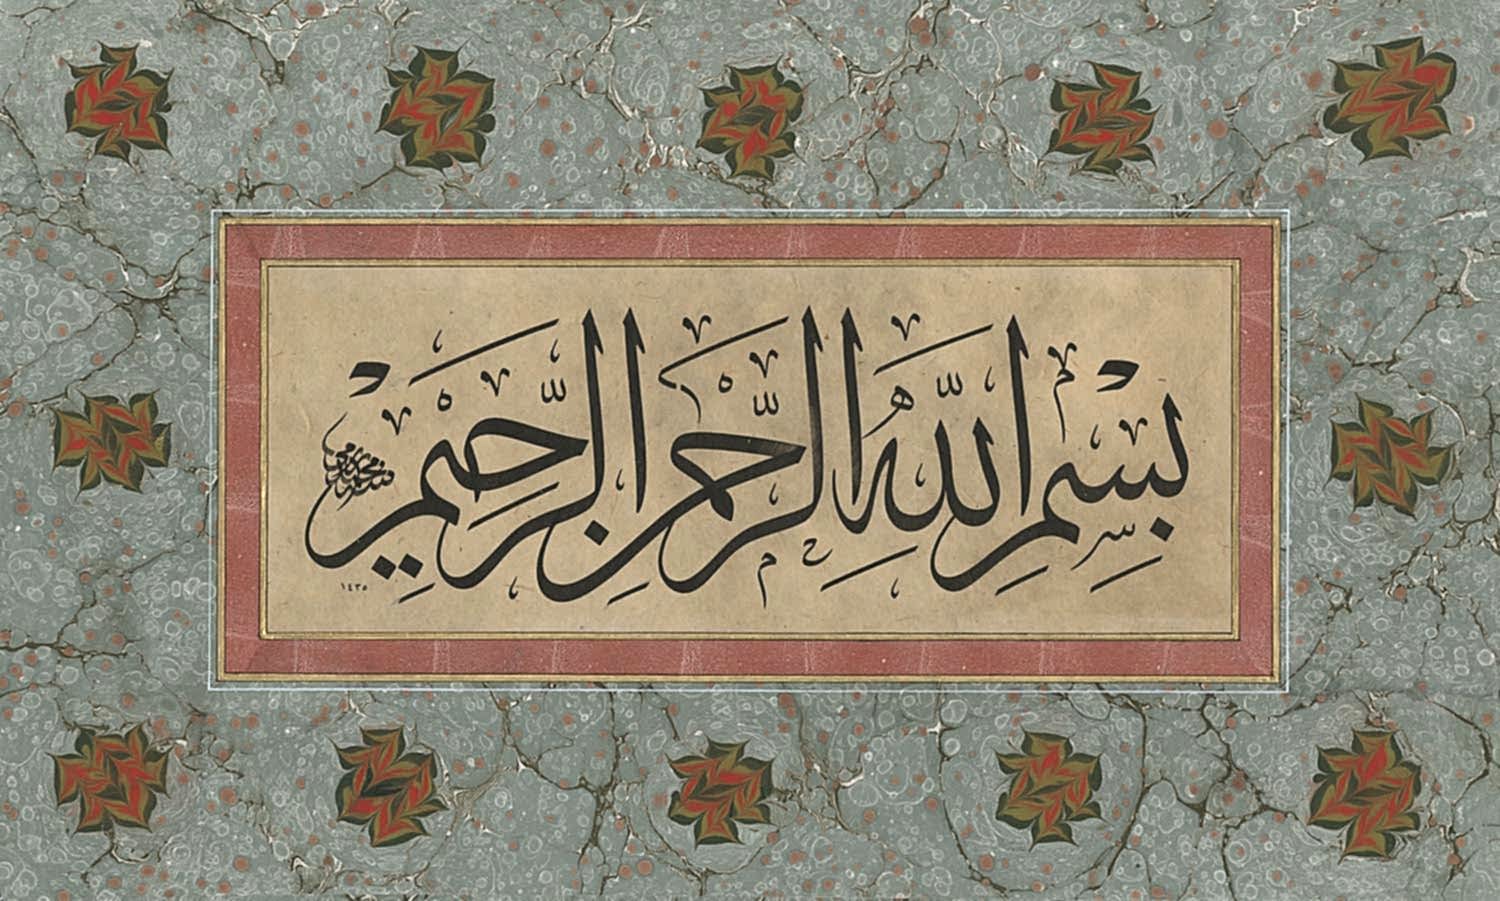 بِسْمِ اللّٰهِ الرَّحْمٰنِ الرَّحِيْمِ
١٤٣٥